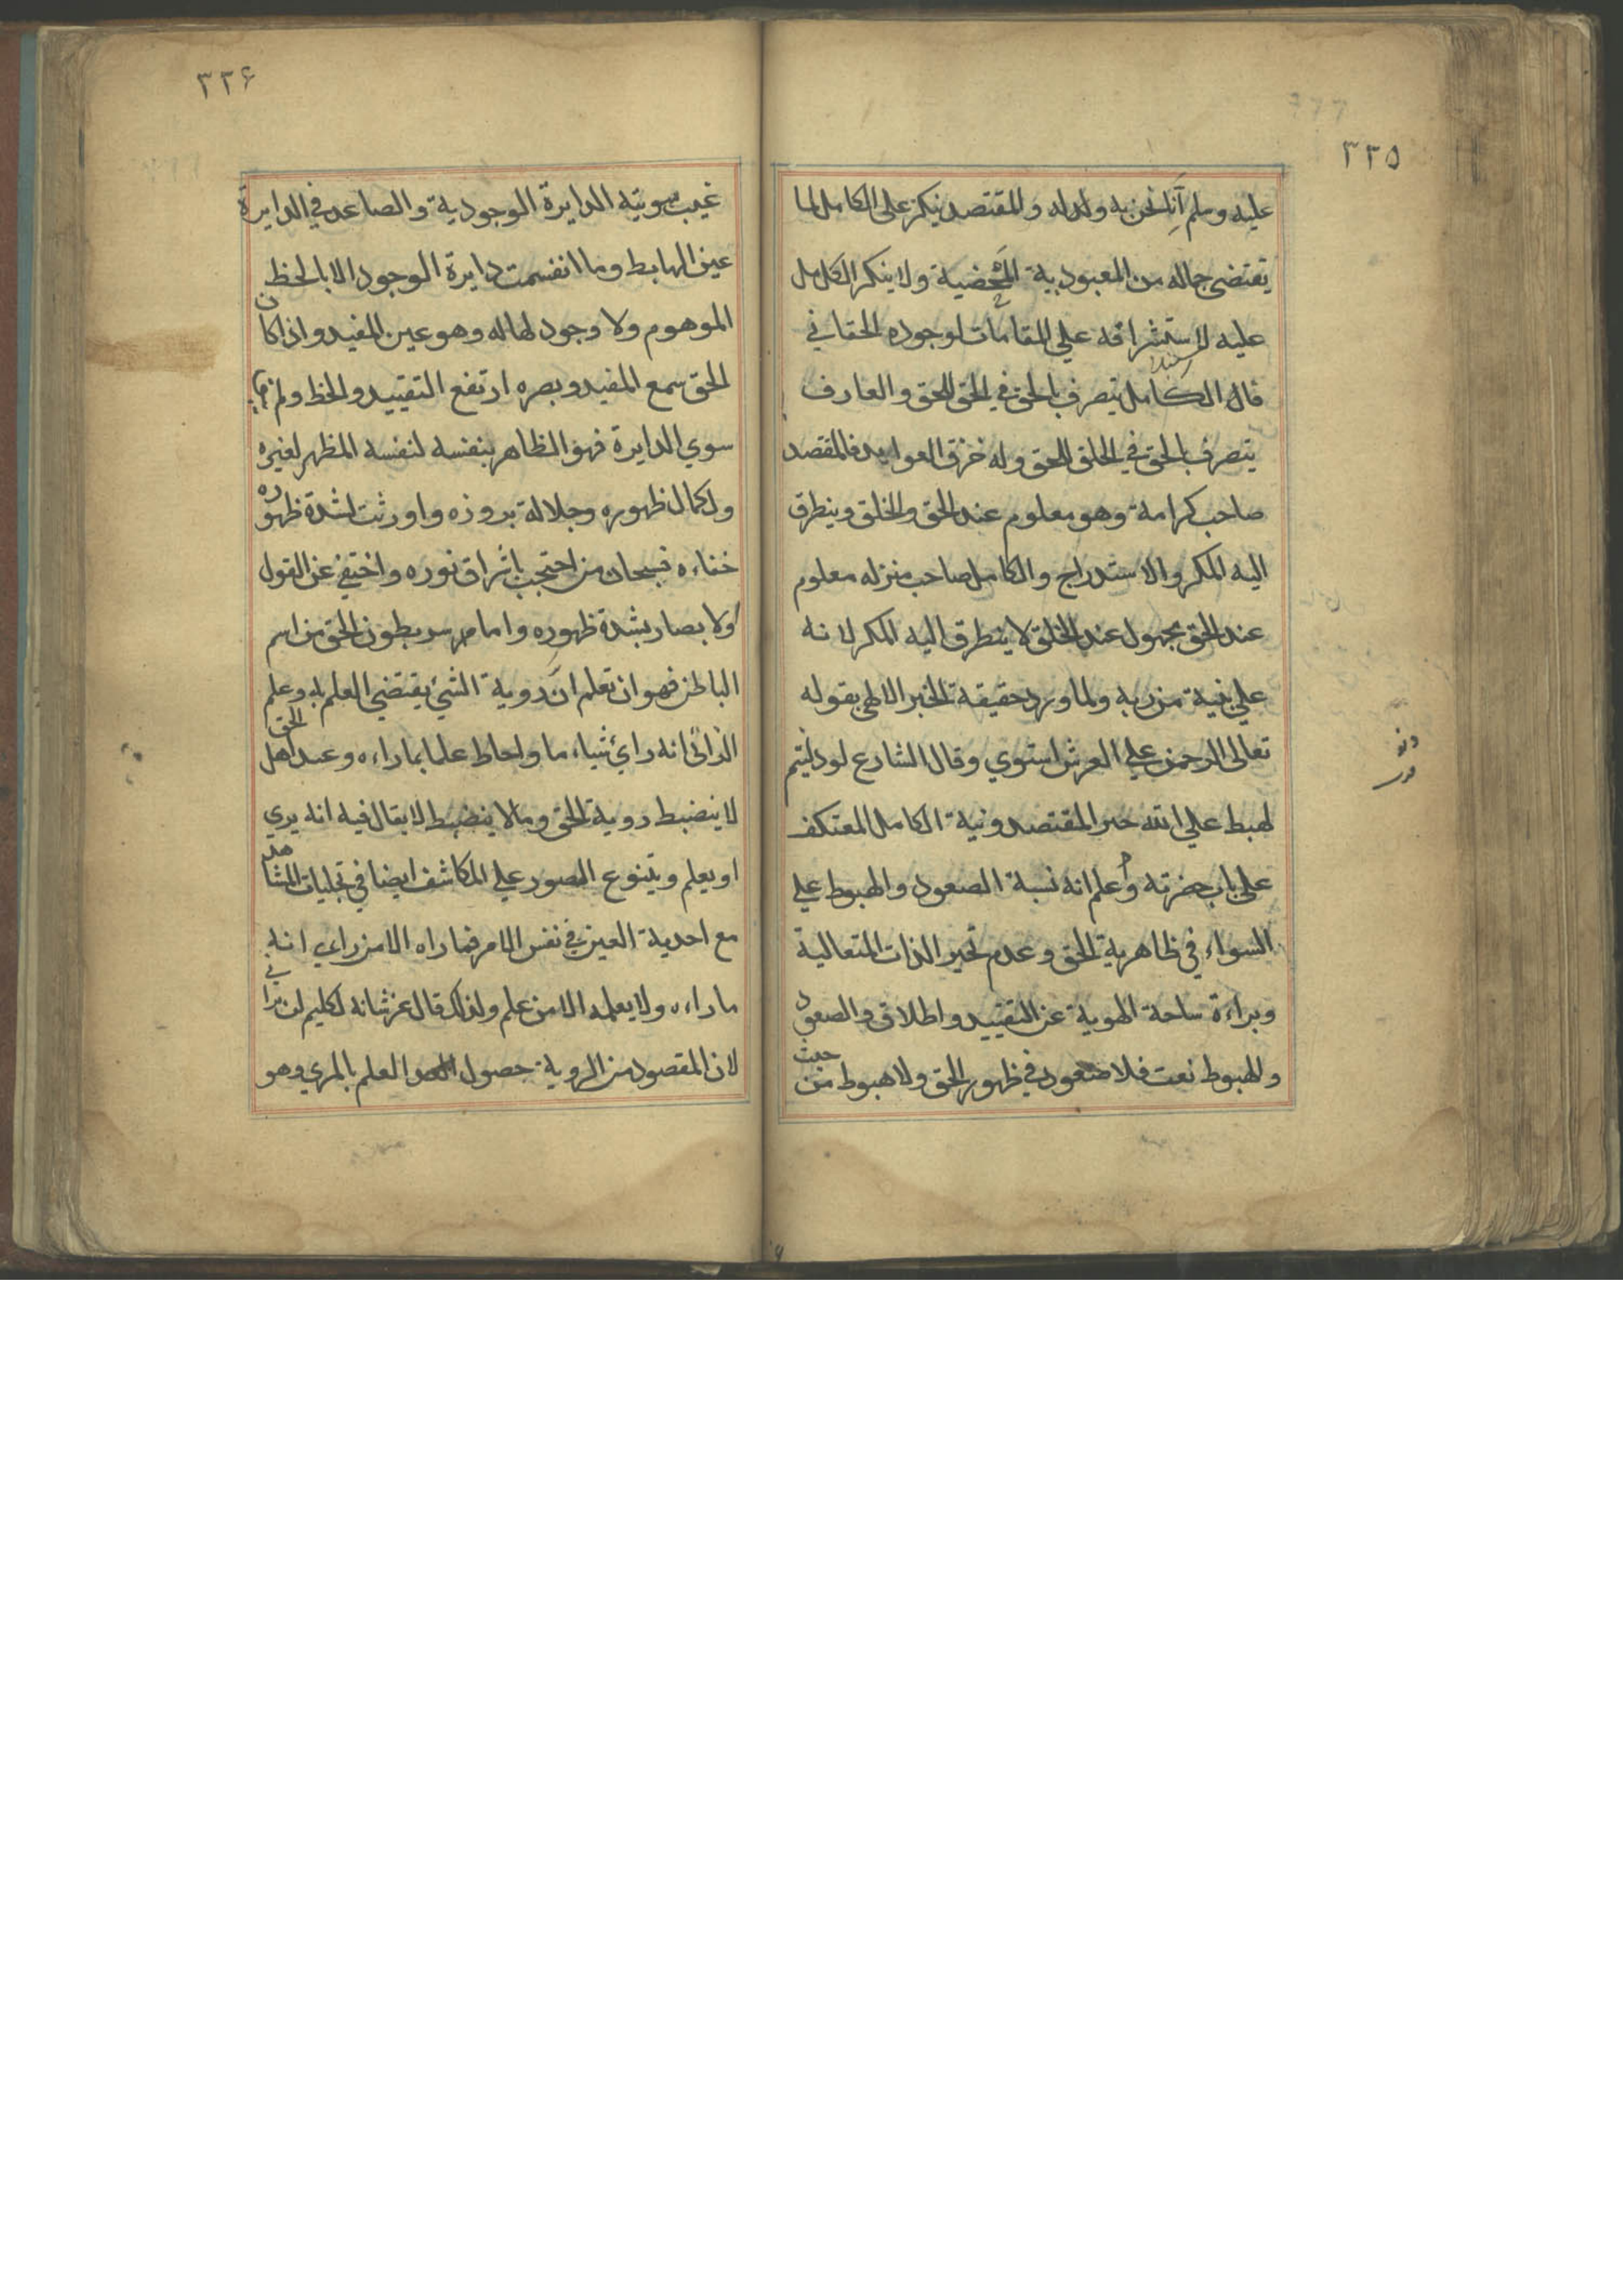 ٣٣٥
عليه وسلم انا نحن به وله والمقتصد ينكر على الكامل لما
يقتضي حاله من المعبودية المحضية ولا ينكر الكامل
عليه لاستشرافه علي المقامات لوجوده الحقاني
فان الكامل يتصرف بالحق في الحق للحق والعارف
يتصرف بالحق في الخلق للحق وله خرق العوايد فالمقتصد
صاحب كرامة وهو معلوم عند الحق والخلق ويتطرق
اليه المكر والاستدراج والكامل صاحب منزله معلوم
عند الحق مجهول عند الخلق لا يتطرق اليه المكر لانه
علي بنية من ربه ولما ورد حقيقة الخبر الالهي بقوله
تعالى الرحمن علي العرش استوي وقال الشارع لو دليتم
لهبط علي الله المقتصد ونية الكامل المعتكف
علي باب حضرته واعلم انه نسبة الصعود والهبوط علي
السواء في ظاهرية الحق وعدم تحير الذات المتعالية
وبراءة ساحة الهوية عن التقييد واطلاق والصعود
والهبوط نعت فلا صعود في ظهور الحق ولا هبوط من حيث
٣٣۶
غيب هويته الدايرة الوجودية والصاعد في الدايرة
عين الهابط وما انقسمت دايرة الوجود الا بالخط
الموهوم ولا وجود لها له وهو عين المقيد واذا كان
الحق سمع المقيد وبصره ارتفع التقييد والخط ولم
سوي الدايرة فهو الظاهر بنفسه لنفسه المظهر لغيره
ولكمال ظهوره وجلالة بروزه واورثت لشدة ظهوره
خفاءه فسبحان من احتجب باشراق نوره واختفي عن العقول
ولا بصار بشدة ظهوره واما سر بطون الحق من اسم
الباطن فهو ان تعلم ان روية الشئ يقتضي العلم به وعلم
الرائي انه راي شياء ما واحاط علما بما راءه وعند اهل الحق
لا ينضبط روية الحق وما لا ينضبط لا يقال فيه انه يري
او يعلم ويتنوع الصور علي المكاشف ايضا في تجليات المشاهد
مع احدية العين في نفس الامر فما راه الا من راي انه
ما راءه ولا يعلمه الا من علم ولذلك قال عز شانه لكليم لن تراني
لان المقصود من الروية حصول العلم بالمري وهو